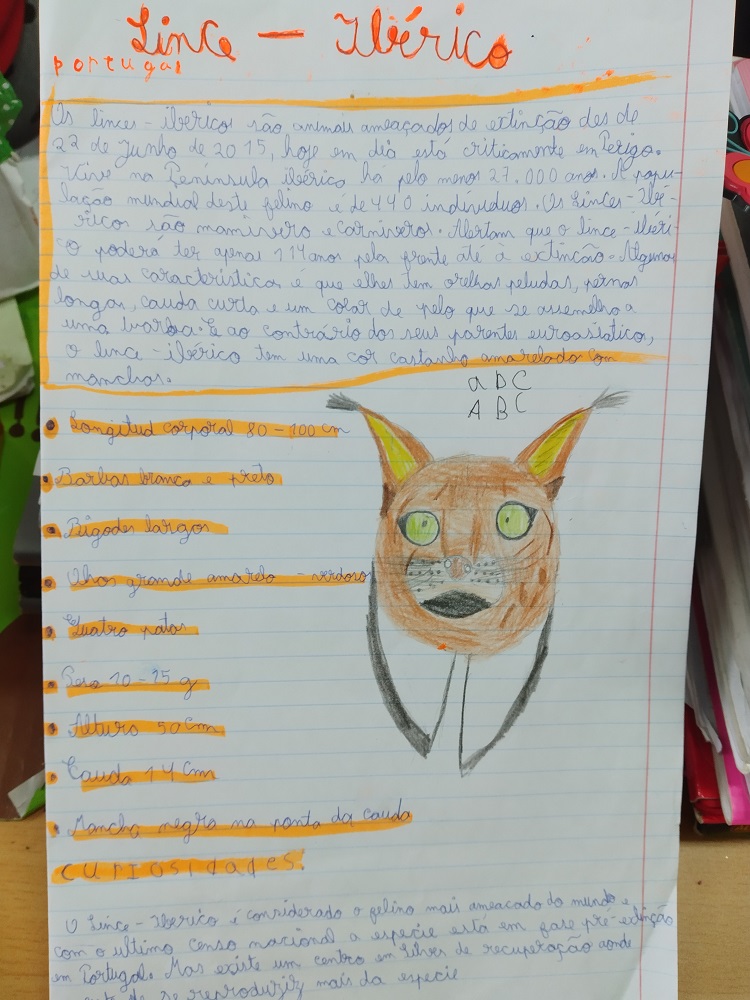 Lince - Ibérico
portugal
Os linces - ibericos são animais ameaçados de extinção des de
22 de Junho de 2015, hoje em dia está criticamente em Perigo.
Vive na Península ibérica há pelo menos 27.000 anos. A popu-
lação mundial deste felino é de 440 indivíduos. Os Linces - Ibé-
ricos são mamivero e carnivoros. Alertam que o lince - ibéri-
co poderá ter apenas 114 anos pela frente até à extinção. Algumas
de suas características é que elhes tem orelhas peludas, pernas
longas, cauda curta e um colar de pelo que se assemelha a
uma barba. E ao contrário dos seus parentes euroasiatico,
o lince - ibérico tem uma cor castanho amarelado com
manchas.
a b c
A B C
Longitud corporal 80 - 100 cm
Barbas branca e preto
Bigodes largos
Olhos grande amarelo - verdoso
Quatro patas
Peso 10 - 15 g
Altura 50 cm
Cauda 14 cm
Mancha negra na ponta da cauda
curiosidades.
O Lince - Iberico é considerado o felino mais ameacado do mundo e
com o ultimo censo nacional a especie está em fase pré-extinção
em Portugal. Mas existe um centro em Silves de recuperação aonde
de se reproduziz mais da especie